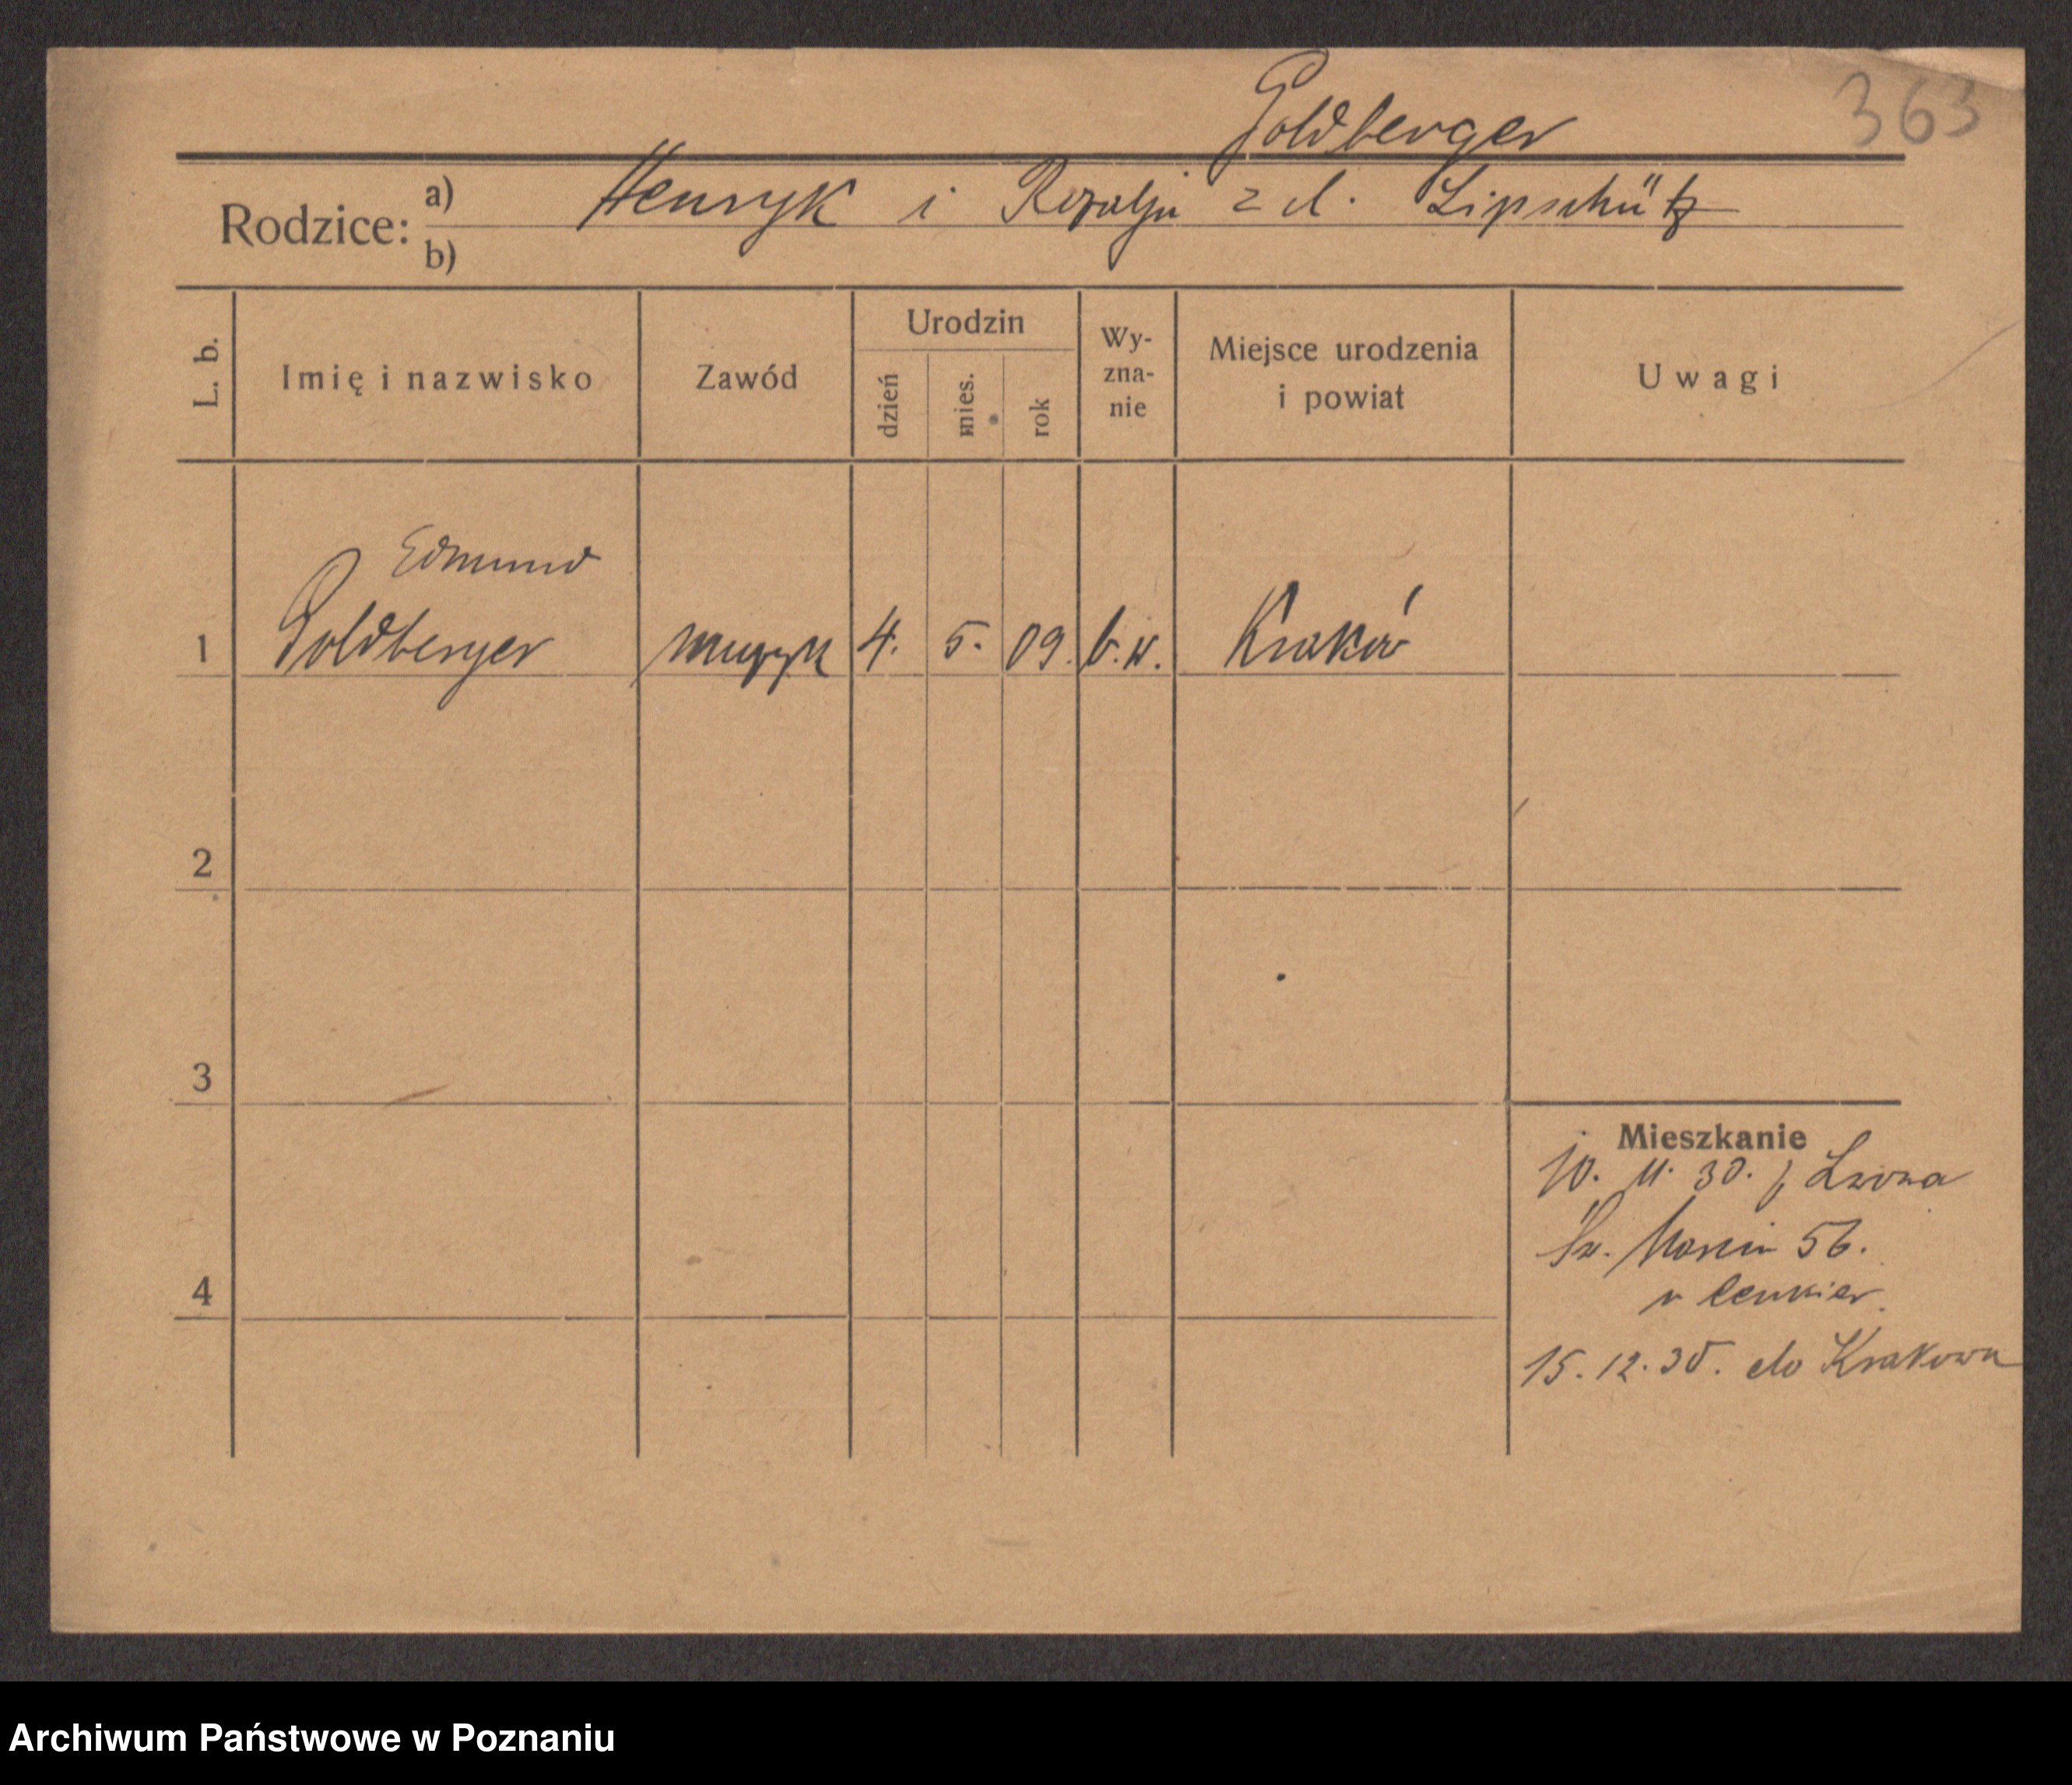 Goldberger
363
Rodzice: a) Henryk i Rozalja z d. Lipschütz
b)
L. b.
Imię i nazwisko
Zawód
Urodzin
dzień
mies.
rok
Wy-
zna-
nie
Miejsce urodzenia
i powiat
Uwagi
Edmund
1 Goldberger muzyk 4. 5. 09. b.w. Kraków
2
3
4
Mieszkanie
10. 11. 30. z Lwowa
Św. Marcin 56.
15. 12. 30. do Krakowa
Archiwum Państwowe w Poznaniu